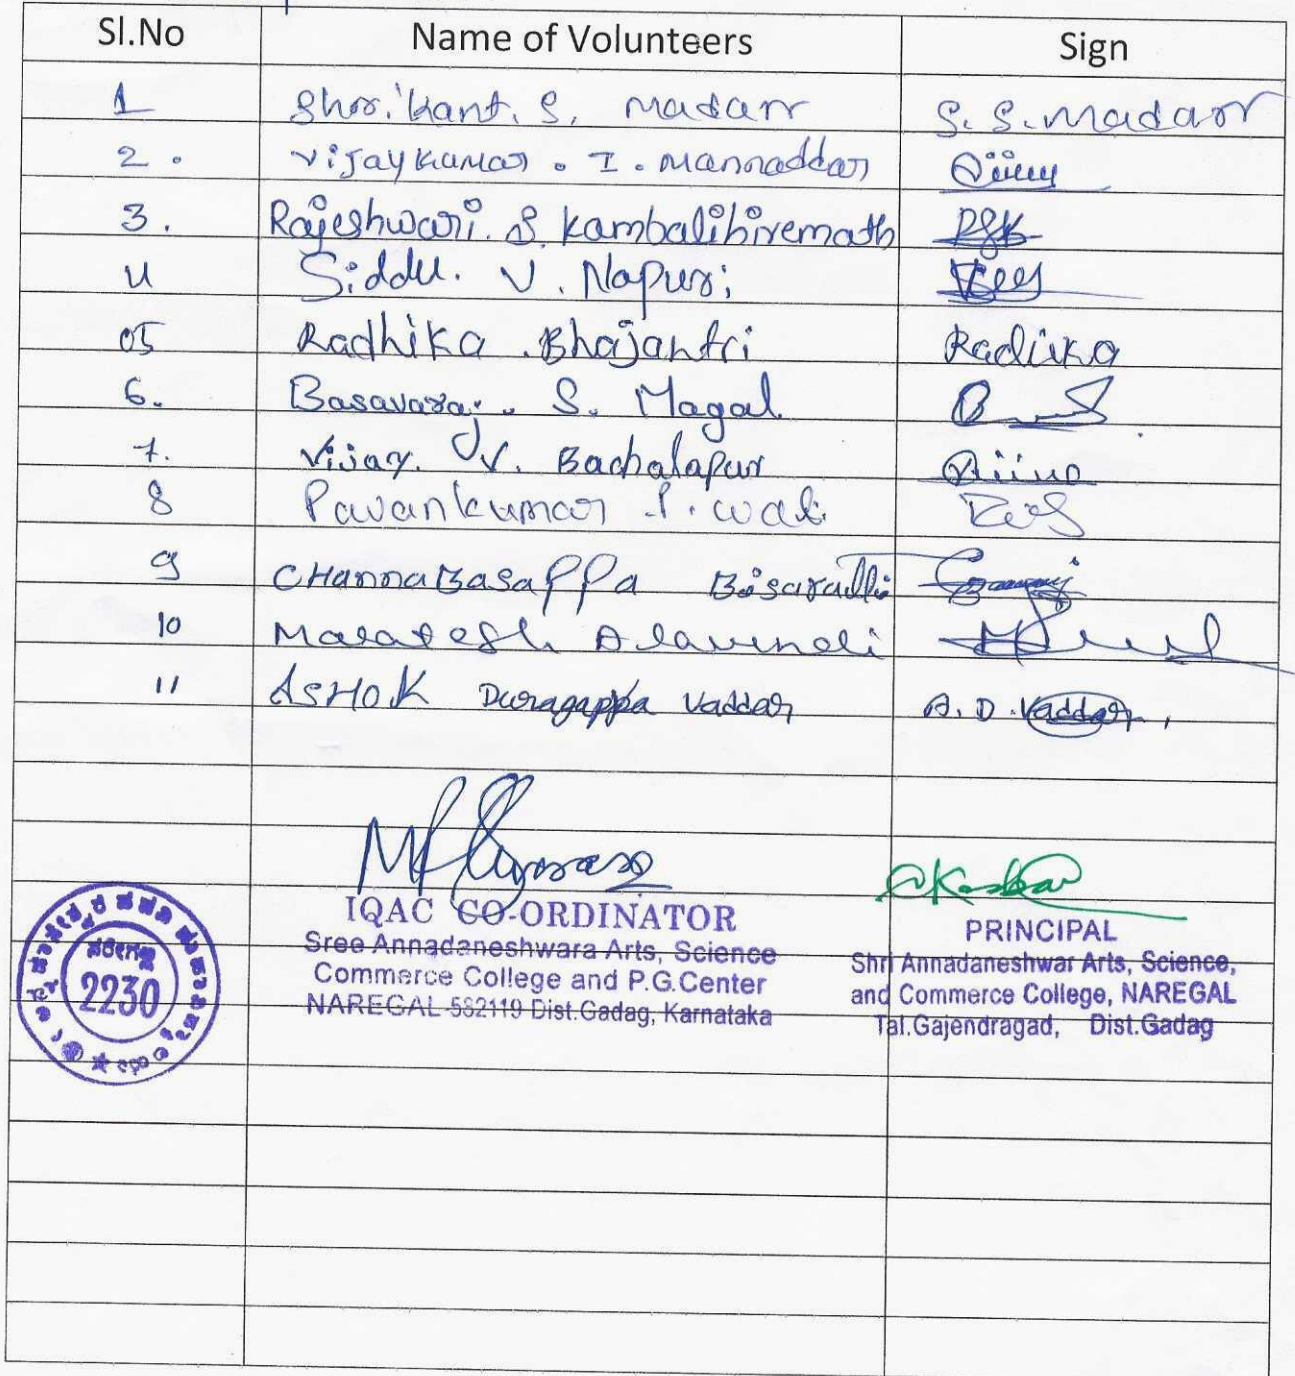 Sl.No Name of Volunteers Sign
1 Shrikant. S. Madarr S. S. Madarr
2. Vijaykumar. I. Mannaddar
3. Rajeshwari. S. Kambalihiremath RSK
4 Siddu. V. Napuri
05 Radhika Bhajantri Radhika
6. Basavaraj. S. Magal
7. Vijay. V. Bachalapur
8 Pavankumar P. wali
9 CHannaBasappa Bisaralli
10 Malatesh Alavundi
11 ASHOK Duragappa Vaddar A. D. Vaddar
IQAC CO-ORDINATOR
Sree Annadaneshwara Arts, Science
Commerce College and P.G.Center
NAREGAL-582119 Dist.Gadag, Karnataka
PRINCIPAL
Shri Annadaneshwar Arts, Science,
and Commerce College, NAREGAL
Tal.Gajendragad, Dist.Gadag
ನರೇಗಲ್ಲ
2230